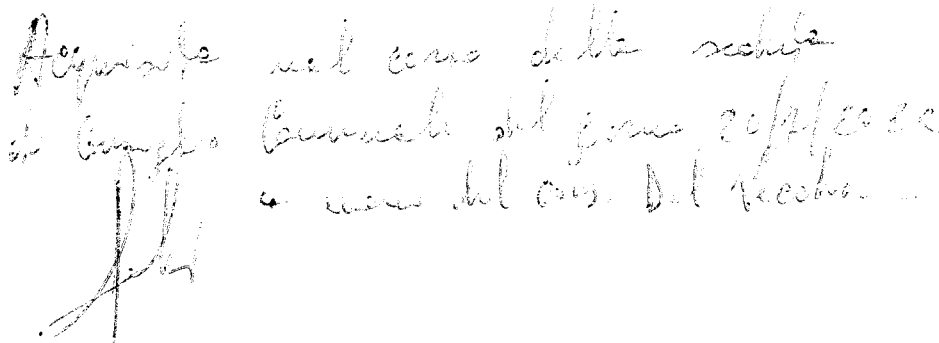 Acquisita nel corso della seduta
di Consiglio Comunale del giorno 20/7/2022
a mano del cons. Del Vecchio